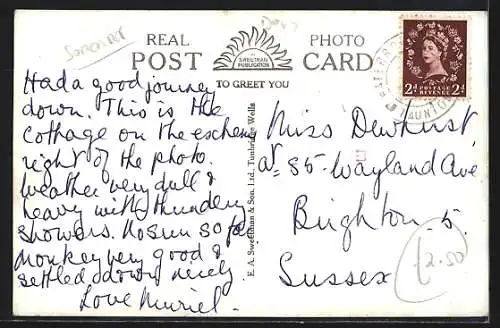 SOMERSET
REAL PHOTO
POST CARD
SWEETMAN
PUBLICATION
TO GREET YOU
2D POSTAGE REVENUE 2D
TAUNTO
Had a good journey
down. This is the
cottage on the extreme
right of the photo.
Weather very dull &
heavy with thundery
showers. No sun so far
Monkey very good &
settled down nicely
Love Muriel.
E. A. Sweetman & Son, Ltd., Tunbridge Wells
Miss Dewhurst
at 85 Wayland Ave
Brighton. 5.
Sussex
£2.50